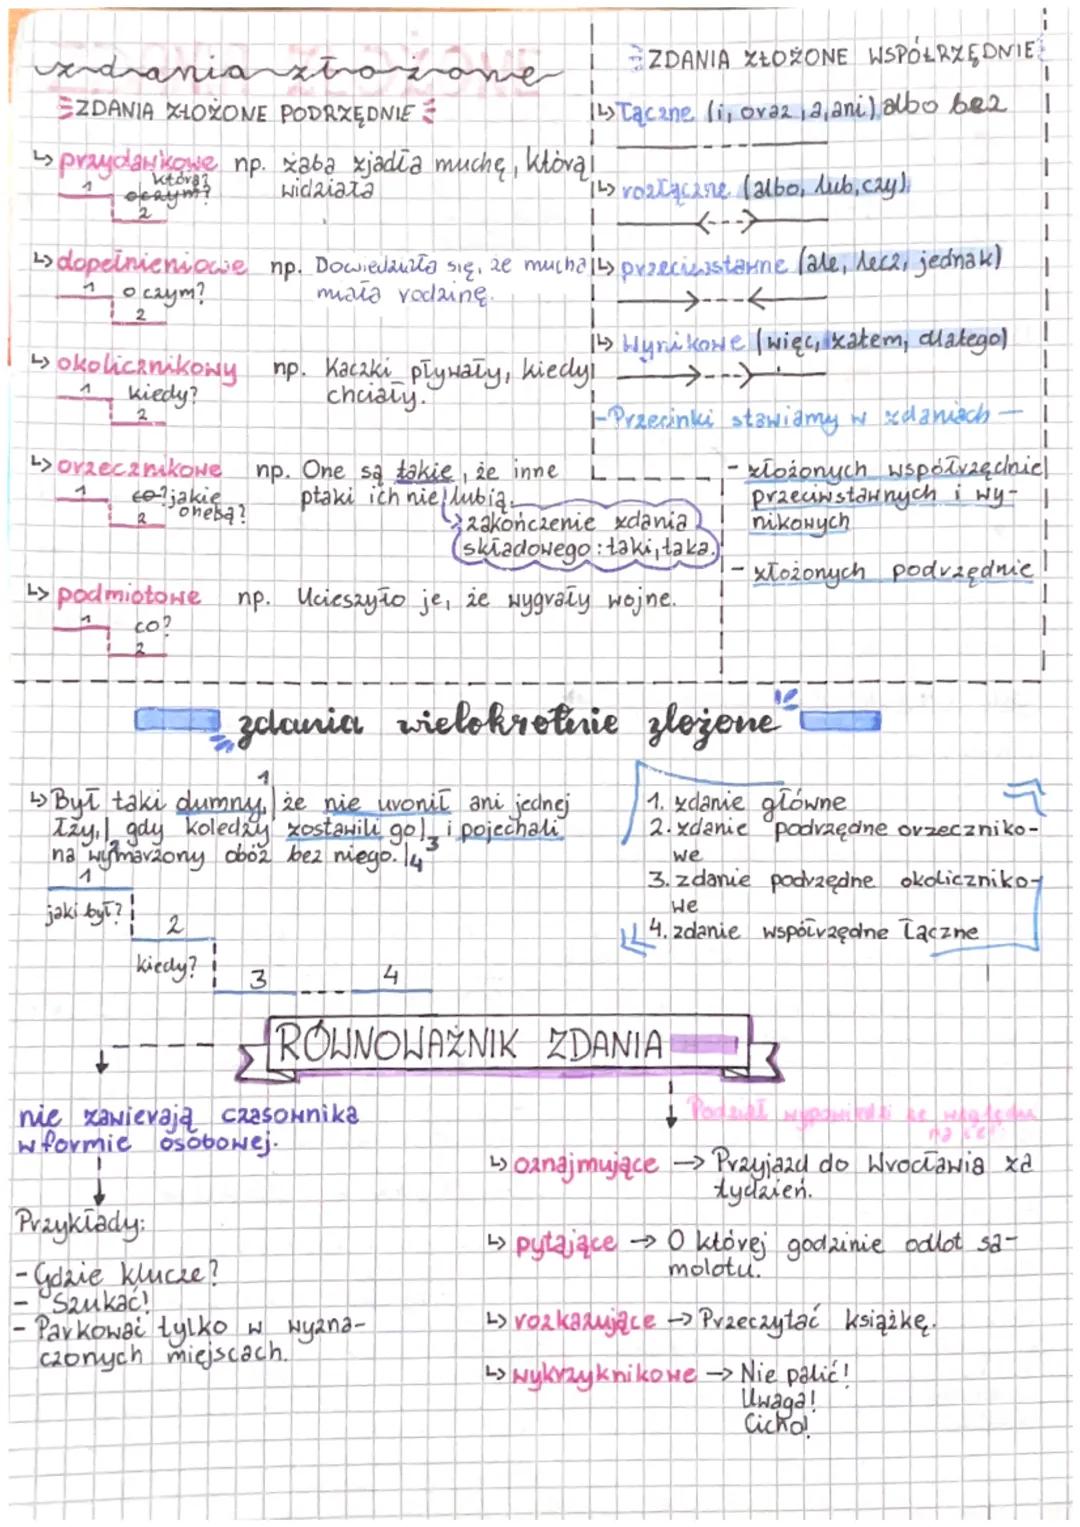 zdania złożone
ZDANIA ZŁOŻONE PODRZĘDNIE
↳ przydawkowe np. żaba zjadła muchę, którą
widziała
1 która?
o czym?
2
↳ dopełnieniowe np. Dowiedziała się, że mucha
miała rodzinę.
1 o czym?
2
↳ okolicznikowy np. Kaczki pływały, kiedy
chciały.
1 kiedy?
2
↳ orzecznikowe np. One są takie, że inne
ptaki ich nie lubią.
1 co? jakie
one są?
2
zakończenie zdania
składowego: taki, taka.
↳ podmiotowe np. Ucieszyło je, że wygrały wojne.
1 co?
2
ZDANIA ZŁOŻONE WSPÓŁRZĘDNIE
↳ łączne (i, oraz, a, ani) albo bez
↳ rozłączne (albo, lub, czy)
↳ przeciwstawne (ale, lecz, jednak)
↳ Wynikowe (więc, zatem, dlatego)
- Przecinki stawiamy w zdaniach -
- złożonych współrzędnie
przeciwstawnych i wy-
nikowych
- złożonych podrzędnie
zdania wielokrotnie złożone
1
↳ Był taki dumny, | że nie uronił ani jednej
łzy, | 2 gdy koledzy zostawili go | 3 i pojechali
na wymarzony obóz bez niego. | 4
1
jaki był?
2
kiedy?
3 4
1. zdanie główne
2. zdanie podrzędne orzeczniko-
we
3. zdanie podrzędne okoliczniko-
we
4. zdanie współrzędne łączne
RÓWNOWAŻNIK ZDANIA
nie zawierają czasownika
w formie osobowej.
Przykłady:
- Gdzie klucze?
- Szukać!
- Parkować tylko w wyzna-
czonych miejscach.
Podział wypowiedzi ze względu
na cel
↳ oznajmujące → Przyjazd do Wrocławia za
tydzień.
↳ pytające → O której godzinie odlot sa-
molotu.
↳ rozkazujące → Przeczytać książkę.
↳ wykrzyknikowe → Nie palić!
Uwaga!
Cicho!